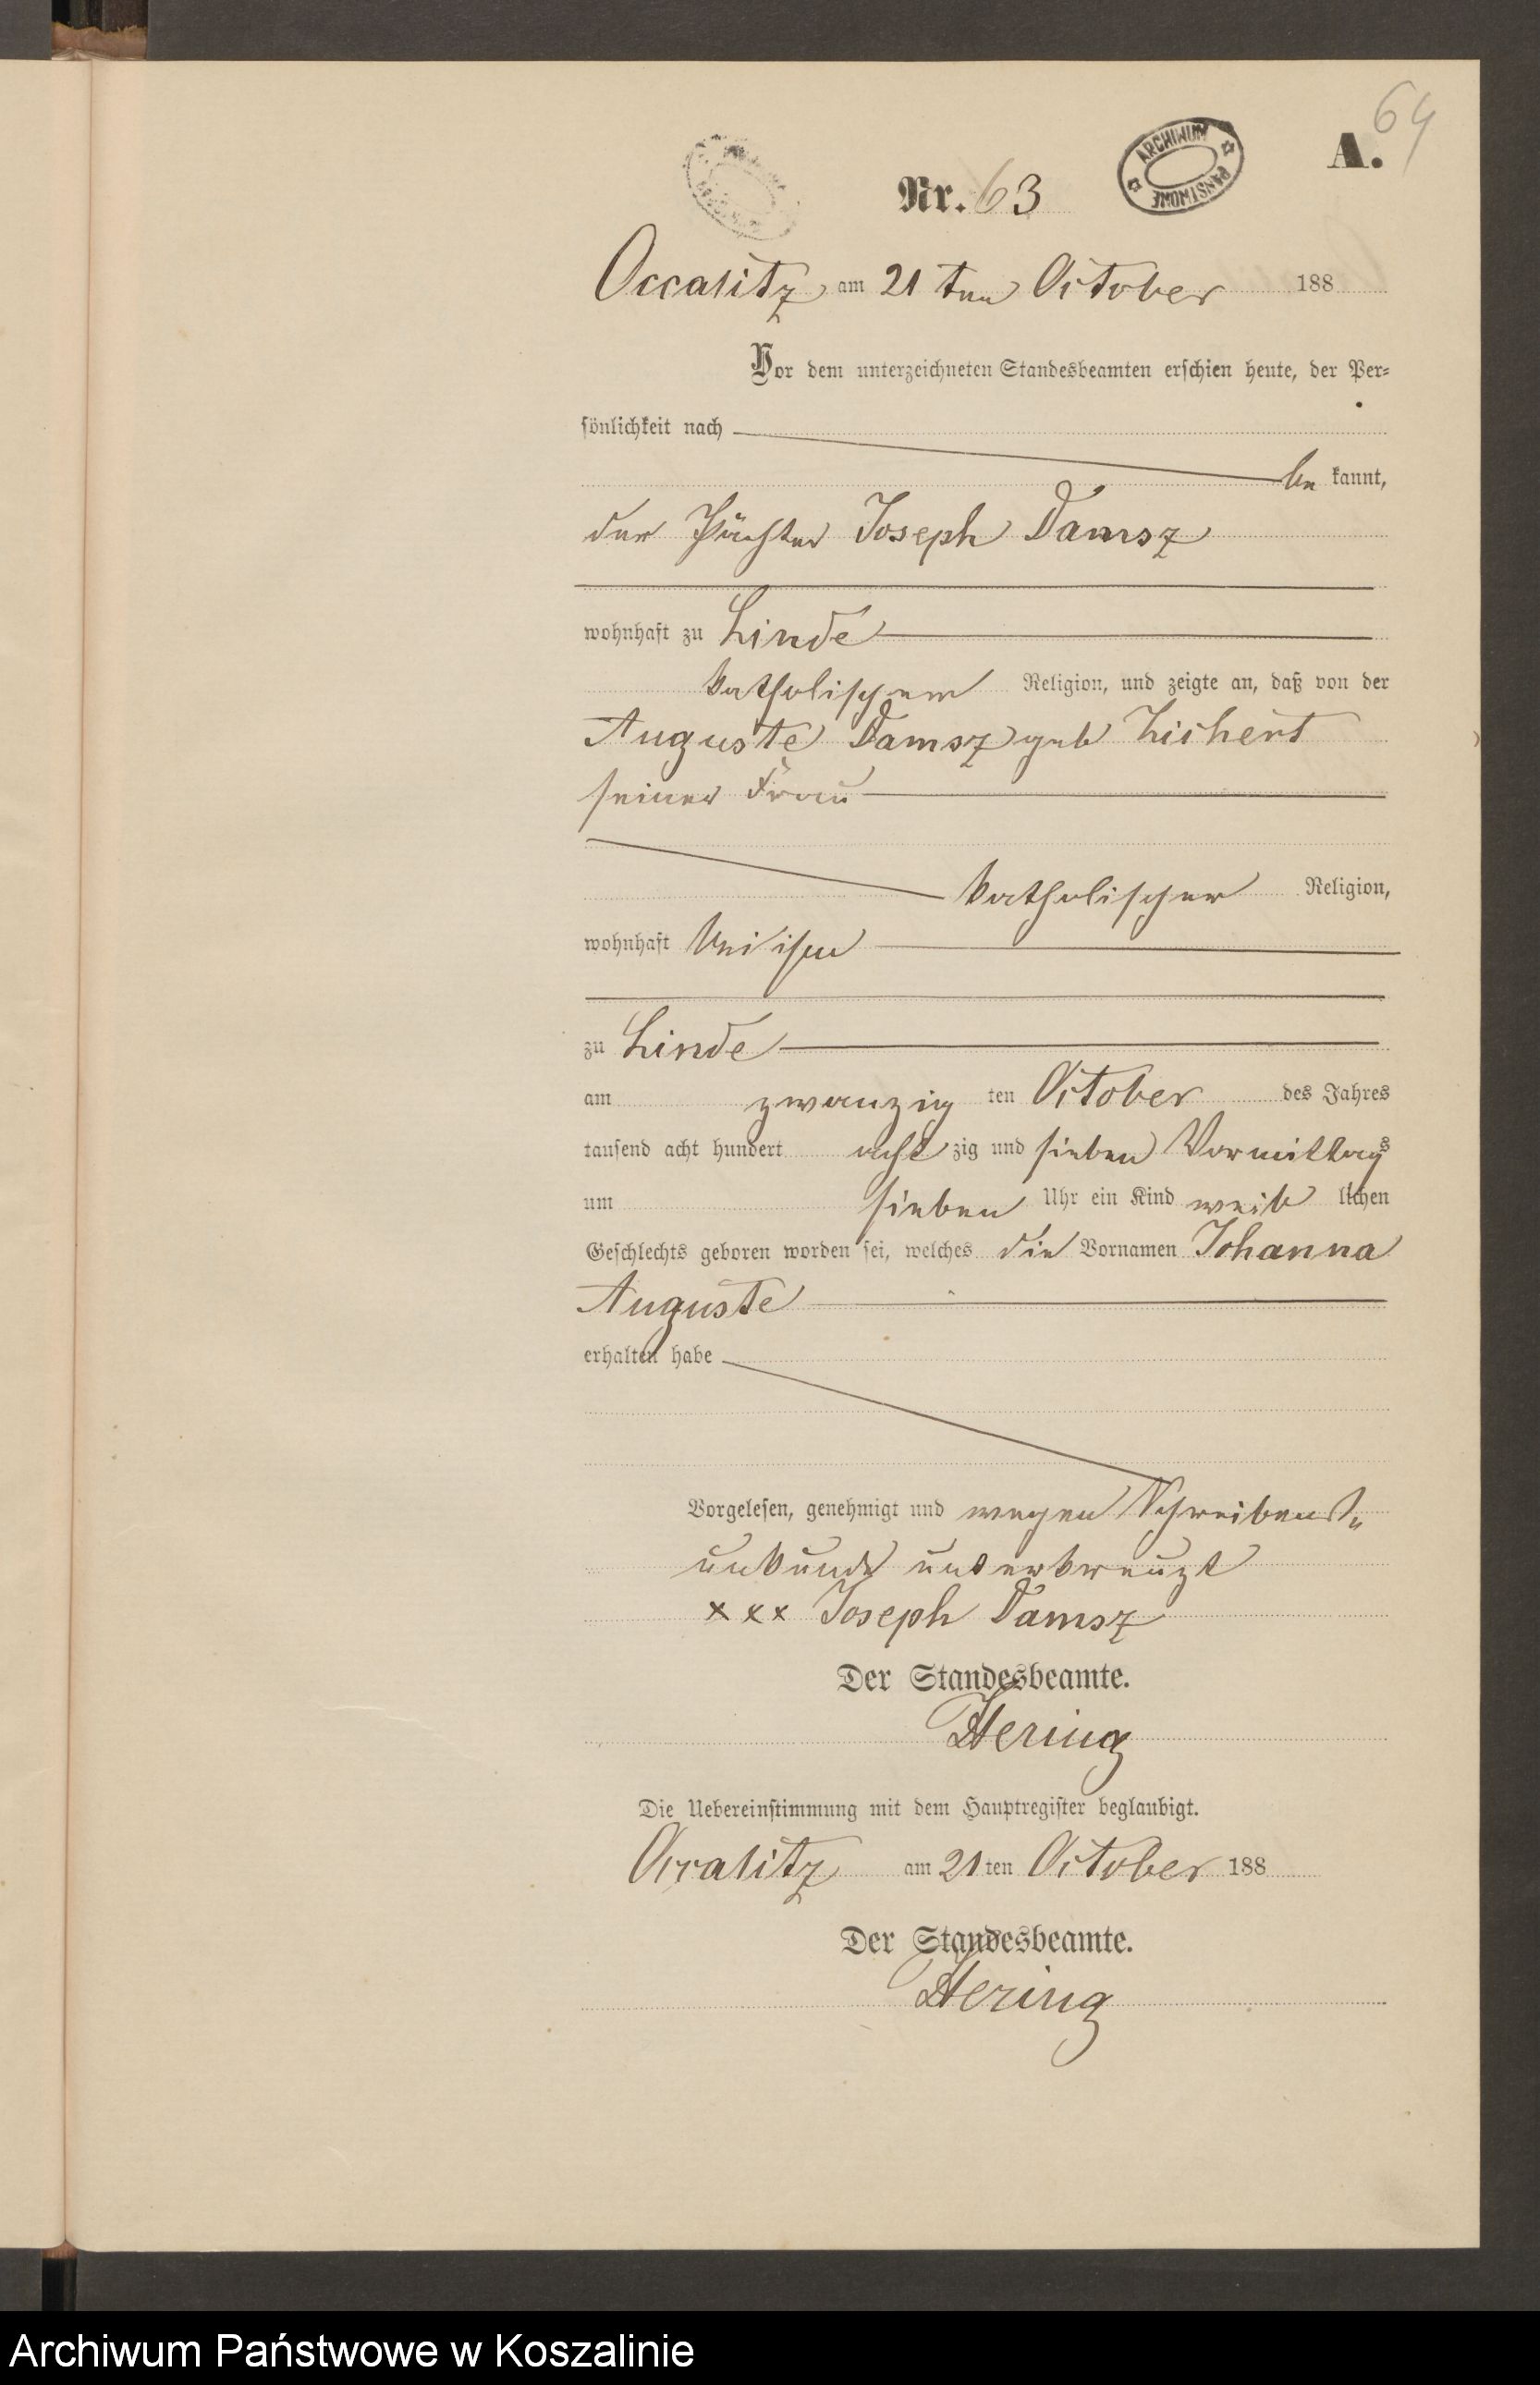 64
A.
ARCHIWUM PAŃSTWOWE
Nr. 63
Occalitz am 21 ten October 188
Vor dem unterzeichneten Standesbeamten erschien heute, der Per-
sönlichkeit nach
be kannt,
der Pächter Joseph Damsz
wohnhaft zu Linde
katholischer Religion, und zeigte an, daß von der
Auguste Damsz geb
seiner Frau
katholischer Religion,
wohnhaft bei ihm
zu Linde
am zwanzig ten October des Jahres
tausend acht hundert acht zig und sieben Vormittags
um sieben Uhr ein Kind weib lichen
Geschlechts geboren worden sei, welches die Vornamen Johanna
Auguste
erhalten habe
Vorgelesen, genehmigt und wegen Schreibens-
unkunde unterkreuzt
xxx Joseph Damsz
Der Standesbeamte.
Hering
Die Uebereinstimmung mit dem Hauptregister beglaubigt.
Occalitz am 21 ten October 188
Der Standesbeamte.
Hering
Archiwum Państwowe w Koszalinie